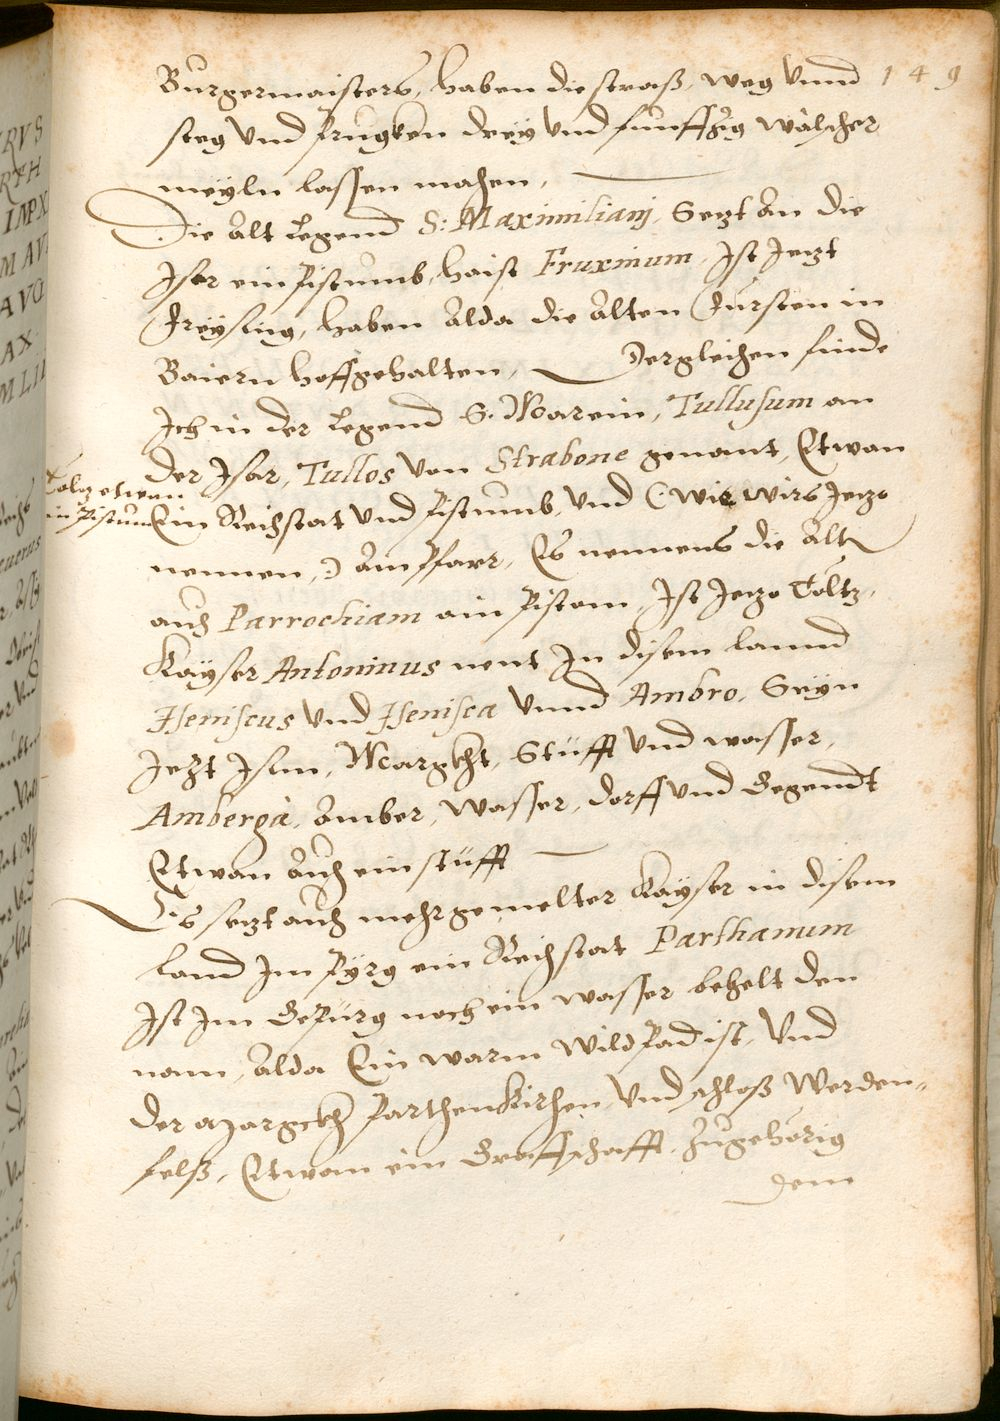 149
Burgermaisters, haben die straß, weg vnnd
steg vnd prugken drey vnd funffzig wälscher
meyln lassen machen,
Die alt legend S: Maximilianj, Sezt an die
Iser ein Pistumb, haist Fruxinum, Ist Jezt
Freysing, haben alda die alten Fürsten in
Baiern hoffgehalten, Dergleichen finde
Ich in der legend S. Marein, Tullusum an
der Isar, Tullos von Strabone genant, Etwan
Tölz etwan
ein Pistum
Ein Reichstat vnd Pistumb, vnd (: wie wirs Jezo
nennen, :) ain Pfarr, Es nennens die alt
auch Parrochiam ain Pistom, Ist Jezo Töltz,
Kayser Antoninus nent In disem lannd
Iseniscus vnd Isenisca vnnd Ambro, Seyn
Jezt Isnn, Margkht, Stüfft vnd wasser,
Amberga, Amber, wasser, dorff vnd Gegendt
Etwan auch ein stüfft
Es sezt auch mehrgemelter Kayser in disem
land Im Pyrg ein Reichstat Parthanum
Ist Im Gepürg noch ein wasser behelt den
nam, alda Ein warm wildpad ist, vnd
der Margckh Parthenkirchen, vnd schloß Werden-
felß, Etwan ein Graffschafft, zugehörig
dem